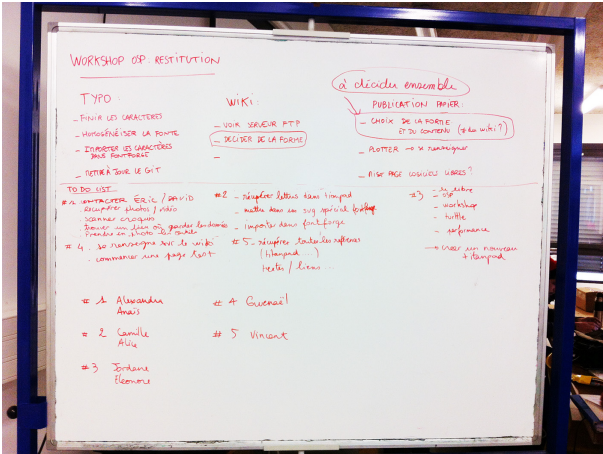 WORKSHOP OSP : RESTITUTION
à décider ensemble
TYPO :
- FINIR LES CARACTÈRES
- HOMOGÉNÉISER LA FONTE
- IMPORTER LES CARACTÈRES
DANS FONTFORGE
- METTRE À JOUR LE GIT
WIKI :
- VOIR SERVEUR FTP
- DECIDER DE LA FORME
-
PUBLICATION PAPIER :
- CHOIX DE LA FORME
ET DU CONTENU (+ du wiki ?)
- PLOTTER → se renseigner
- MISE PAGE LOGICIEL LIBRES ?
TO DO LIST
#1 CONTACTER ÉRIC / DAVID
- Récupérer photos / vidéo
- scanner croquis
- trouver un lieu où garder les données
- Prendre en photo les outils
#2 - récupérer letters dans titanpad
- mettre dans un svg spécial fontforge
- Importer dans fontforge
#3 - le libre
- OSP
- workshop
- turttle
- performance
→ créer un nouveau
titanpad
#4 . se renseigne sur le wiki
- commencer une page test
#5 - récupérer toutes les references
(titanpad ...)
textes / liens ...
#1 Alexandra
Anaïs
#2 Camille
Alice
#3 Jordane
Eleonore
#4 Gwenaël
#5 Vincent